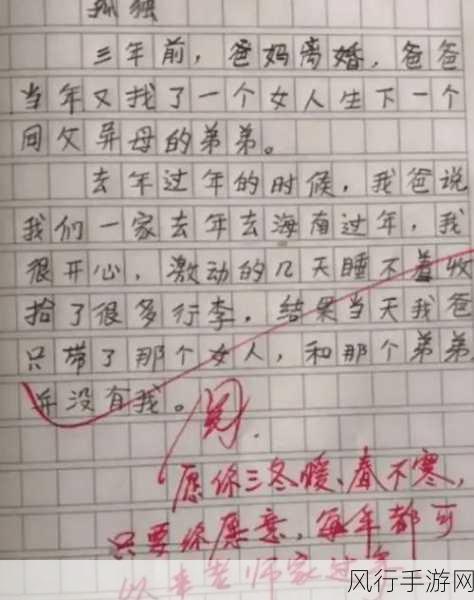 孤独
三年前，爸妈离婚，爸爸
当年又找了一个女人生下一个
同父异母的弟弟。
去年过年的时候，我爸说
我们一家去年去海南过年，我
很开心，激动的几天睡不着收
拾了很多行李，结果当天我爸
只带了那个女人，和那个弟弟
并没有我。
阅.
愿你三冬暖、春不寒，
只要你愿意，每年都可
以来老师家过年
风行手游网